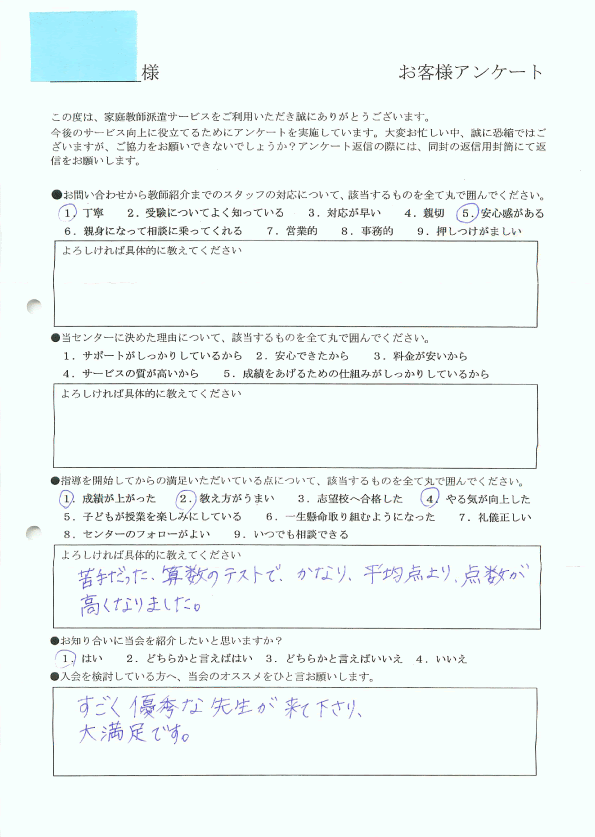 様
お客様アンケート
この度は、家庭教師派遣サービスをご利用いただき誠にありがとうございます。
今後のサービス向上に役立てるためにアンケートを実施しています。大変お忙しい中、誠に恐縮ではご
ざいますが、ご協力をお願いできないでしょうか？アンケート返信の際には、同封の返信用封筒にて返
信をお願いします。
●お問い合わせから教師紹介までのスタッフの対応について、該当するものを全て丸で囲んでください。
1．丁寧　2．受験についてよく知っている　3．対応が早い　4．親切　5．安心感がある
6．親身になって相談に乗ってくれる　7．営業的　8．事務的　9．押しつけがましい
よろしければ具体的に教えてください
●当センターに決めた理由について、該当するものを全て丸で囲んでください。
1．サポートがしっかりしているから　2．安心できたから　3．料金が安いから
4．サービスの質が高いから　5．成績をあげるための仕組みがしっかりしているから
よろしければ具体的に教えてください
●指導を開始してからの満足いただいている点について、該当するものを全て丸で囲んでください。
1．成績が上がった　2．教え方がうまい　3．志望校へ合格した　4．やる気が向上した
5．子どもが授業を楽しみにしている　6．一生懸命取り組むようになった　7．礼儀正しい
8．センターのフォローがよい　9．いつでも相談できる
よろしければ具体的に教えてください
苦手だった、算数のテストで、かなり、平均点より、点数が
高くなりました。
●お知り合いに当会を紹介したいと思いますか？
1．はい　2．どちらかと言えばはい　3．どちらかと言えばいいえ　4．いいえ
●入会を検討している方へ、当会のオススメをひと言お願いします。
すごく優秀な先生が来て下さり、
大満足です。